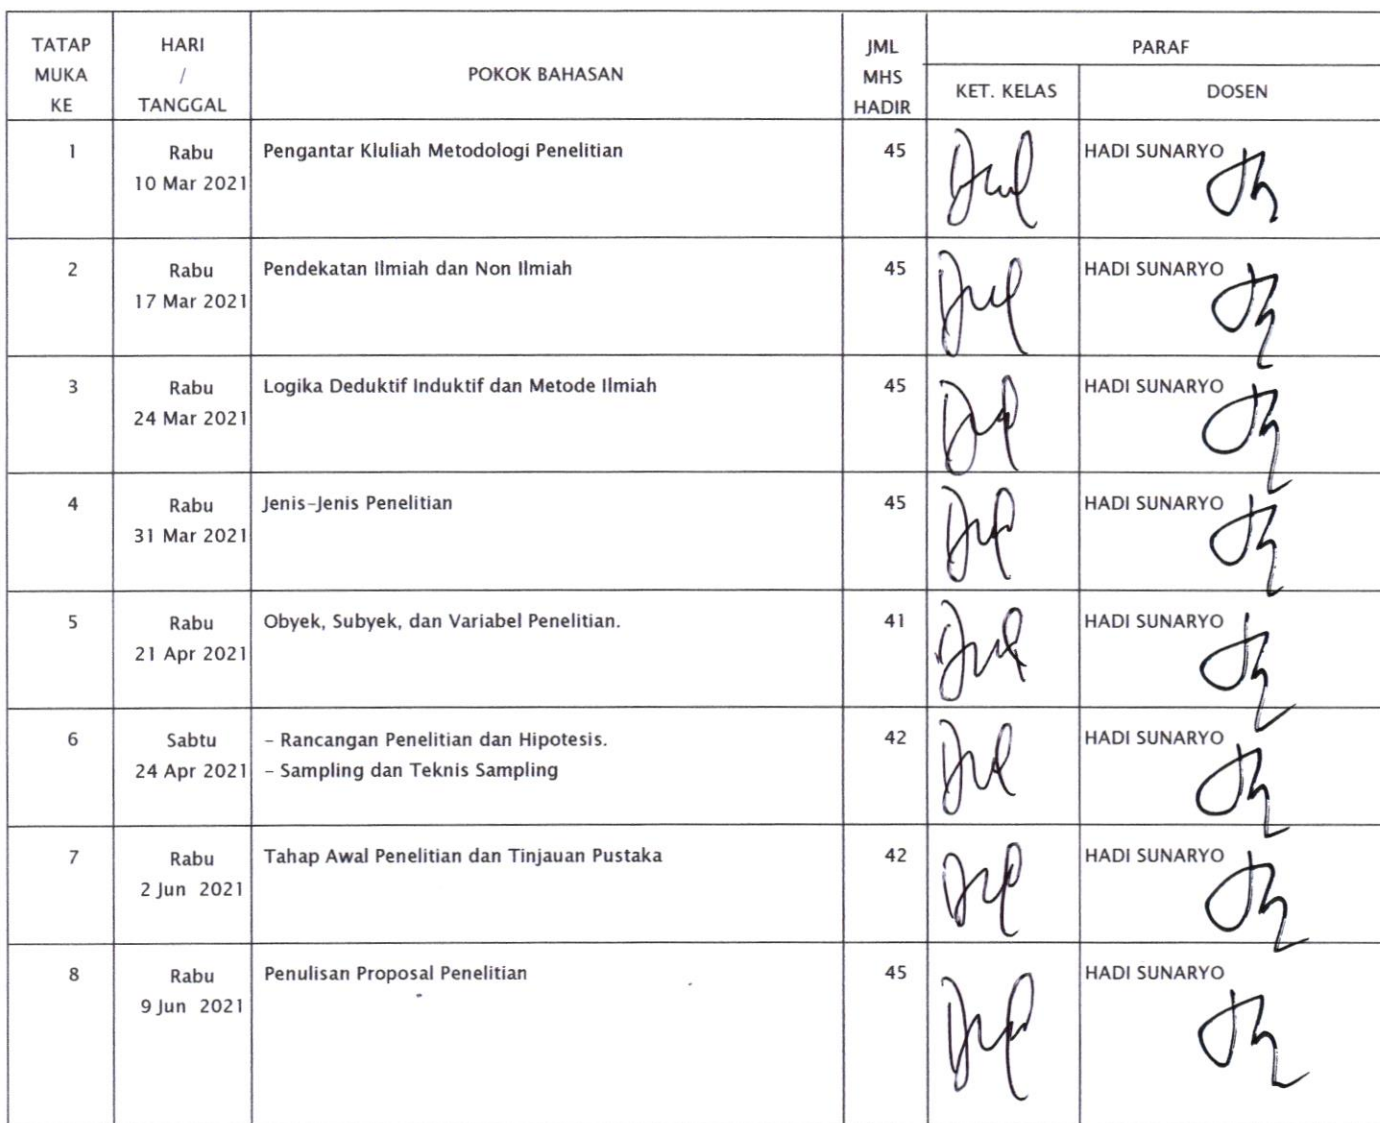 TATAP MUKA KE
HARI / TANGGAL
POKOK BAHASAN
JML MHS HADIR
PARAF
KET. KELAS
DOSEN
1
Rabu
10 Mar 2021
Pengantar Kluliah Metodologi Penelitian
45
HADI SUNARYO
2
Rabu
17 Mar 2021
Pendekatan Ilmiah dan Non Ilmiah
45
HADI SUNARYO
3
Rabu
24 Mar 2021
Logika Deduktif Induktif dan Metode Ilmiah
45
HADI SUNARYO
4
Rabu
31 Mar 2021
Jenis-Jenis Penelitian
45
HADI SUNARYO
5
Rabu
21 Apr 2021
Obyek, Subyek, dan Variabel Penelitian.
41
HADI SUNARYO
6
Sabtu
24 Apr 2021
- Rancangan Penelitian dan Hipotesis.
- Sampling dan Teknis Sampling
42
HADI SUNARYO
7
Rabu
2 Jun 2021
Tahap Awal Penelitian dan Tinjauan Pustaka
42
HADI SUNARYO
8
Rabu
9 Jun 2021
Penulisan Proposal Penelitian
45
HADI SUNARYO